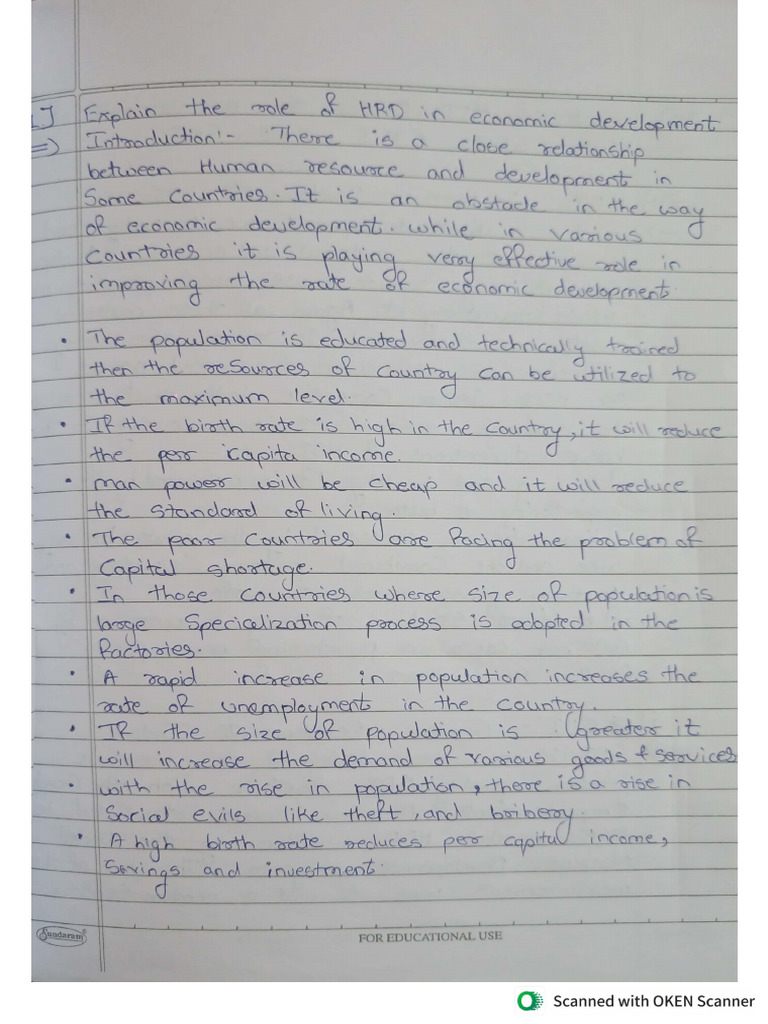 1] Explain the role of HRD in economic development
=) Introduction:- There is a close relationship
between Human resource and development in
Some Countries. It is an obstacle in the way
of economic development. while in various
Countries it is playing very effective role in
improving the rate of economic development.
• The population is educated and technically trained
then the resources of Country can be utilized to
the maximum level.
• If the birth rate is high in the Country, it will reduce
the per capita income.
• man power will be cheap and it will reduce
the standard of living.
• The poor Countries are facing the problem of
Capital shortage.
• In those Countries where size of population is
large Specicalization process is adopted in the
factories.
• A rapid increase in population increases the
rate of unemployment in the Country.
• If the size of population is greater it
will increase the demand of various goods & services
• with the rise in population, there is a rise in
Social evils like theft, and bribery.
• A high birth rate reduces per capital income,
Savings and investment.
Sundaram
FOR EDUCATIONAL USE
Scanned with OKEN Scanner